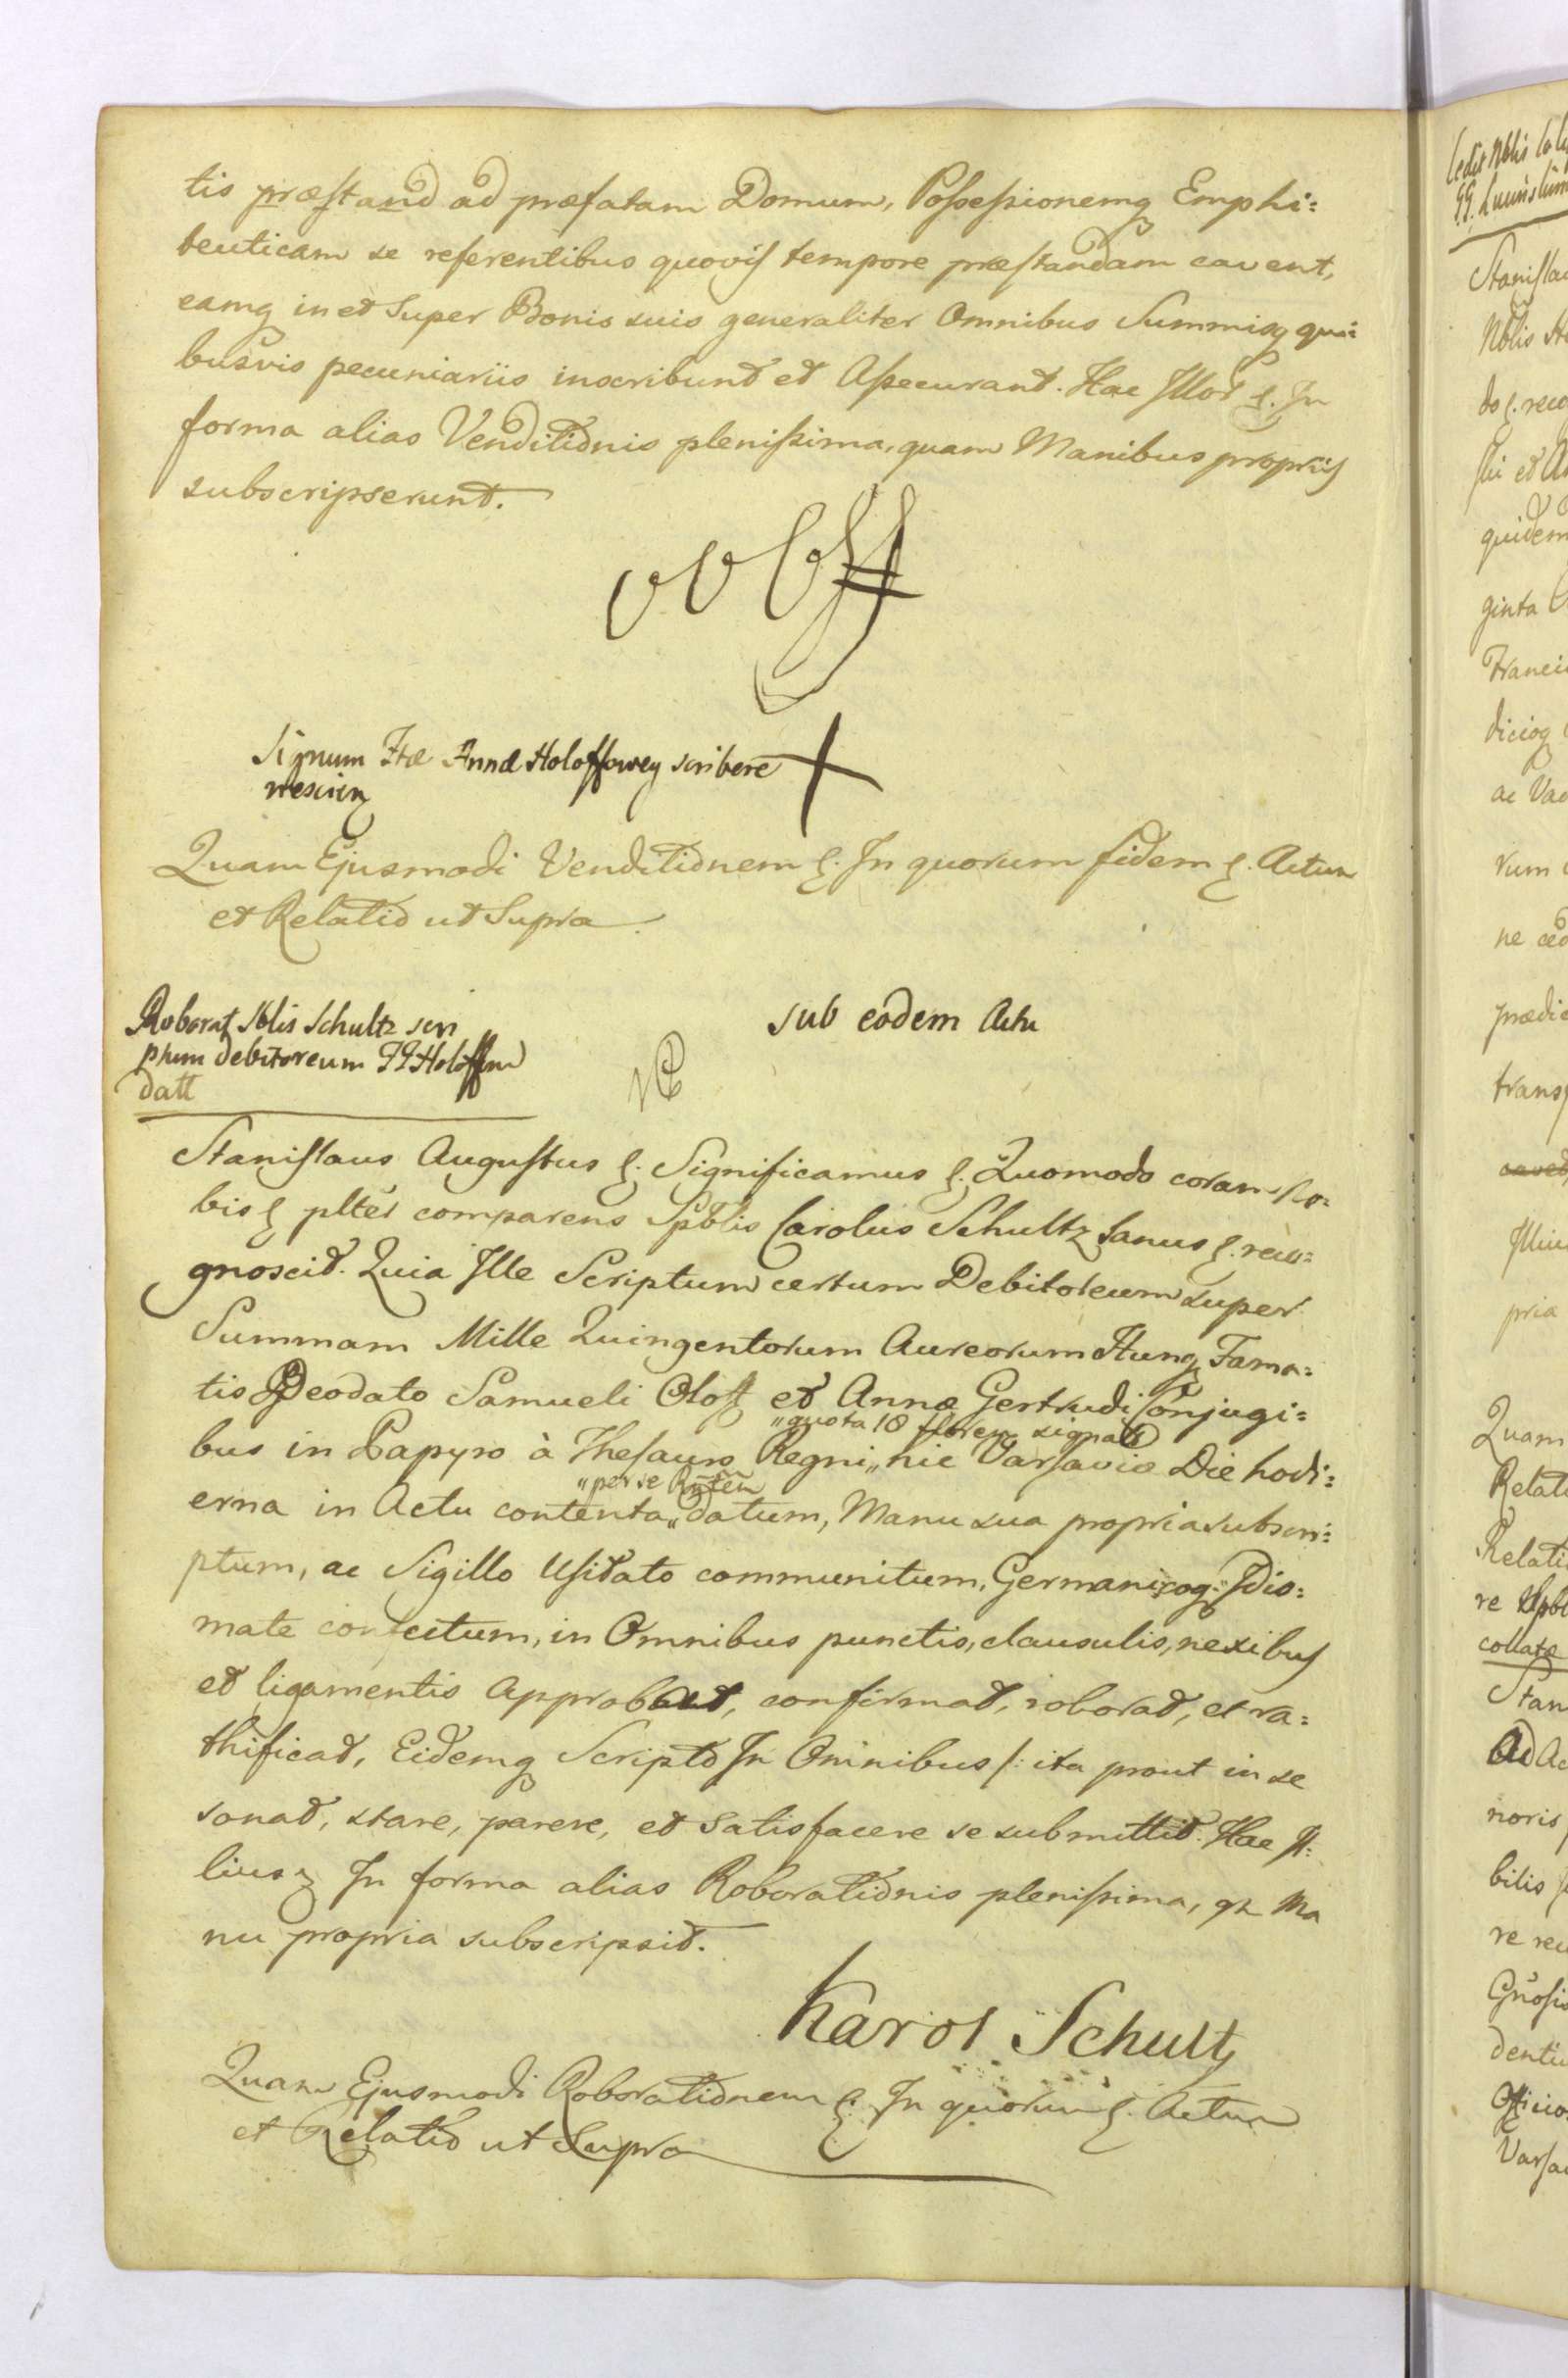 tis præstand ad præfatam Domum, Possessionemq Emphi:
teuticam se referentibus quovis tempore præstandam cavent,
eamq in et Super Bonis suis generaliter Omnibus Summisq qui:
busvis pecuniariis inscribunt et Assecurant. Hac Illor In
forma alias Venditionis plenissima, quam Manibus propriis
subscripserunt.
Signum Annæ Holoffowey scribere
nescien
Quam Ejusmodi Venditionem In quorum fidem Actum
et Relatio ut Supra
sub eodem Actu
Roborat Schultz scri
ptum debitoreum
datt
Stanislaus Augustus Significamus Quomodo coram No:
bis plter comparens Spblis Carolus Schultz Sanus recu:
gnoscit. Quia Ille Scriptum certum Debitoreum super
Summam Mille Quingentorum Aureorum Hung Fama:
tis Deodato Samueli Oloff et Annæ Gertrudi Conjugi:
"quota 18 floren signato
bus in Papyro à Thesauro Regni" hic Varsaviæ Die hodi:
"per se Rntem
erna in Actu contenta" datum, Manu sua propria subscri:
ptum, ac Sigillo Usitato communitum, Germanicoq: Idio:
mate confectum, in Omnibus punctis, clausulis, nexibus
et ligamentis Approbat, confirmat, roborat, et ra:
thificat, Eidemq Scripto In Omnibus /: ita prout in se
sonat, stare, parere, et Satisfacere se submittit. Hac Il:
lius In forma alias Roborationis plenissima, qm Ma
nu propria subscripsit.
Karol Schultz
Quam Ejusmodi Roborationem In quorum Actum
et Relatio ut Supra
Stanislau
Nblis
quidem
ginta
ac Vac
rum
ne
transf
pria
Quam
Relati
Relati
collatæ
Stan
noris
bilis
Varsa